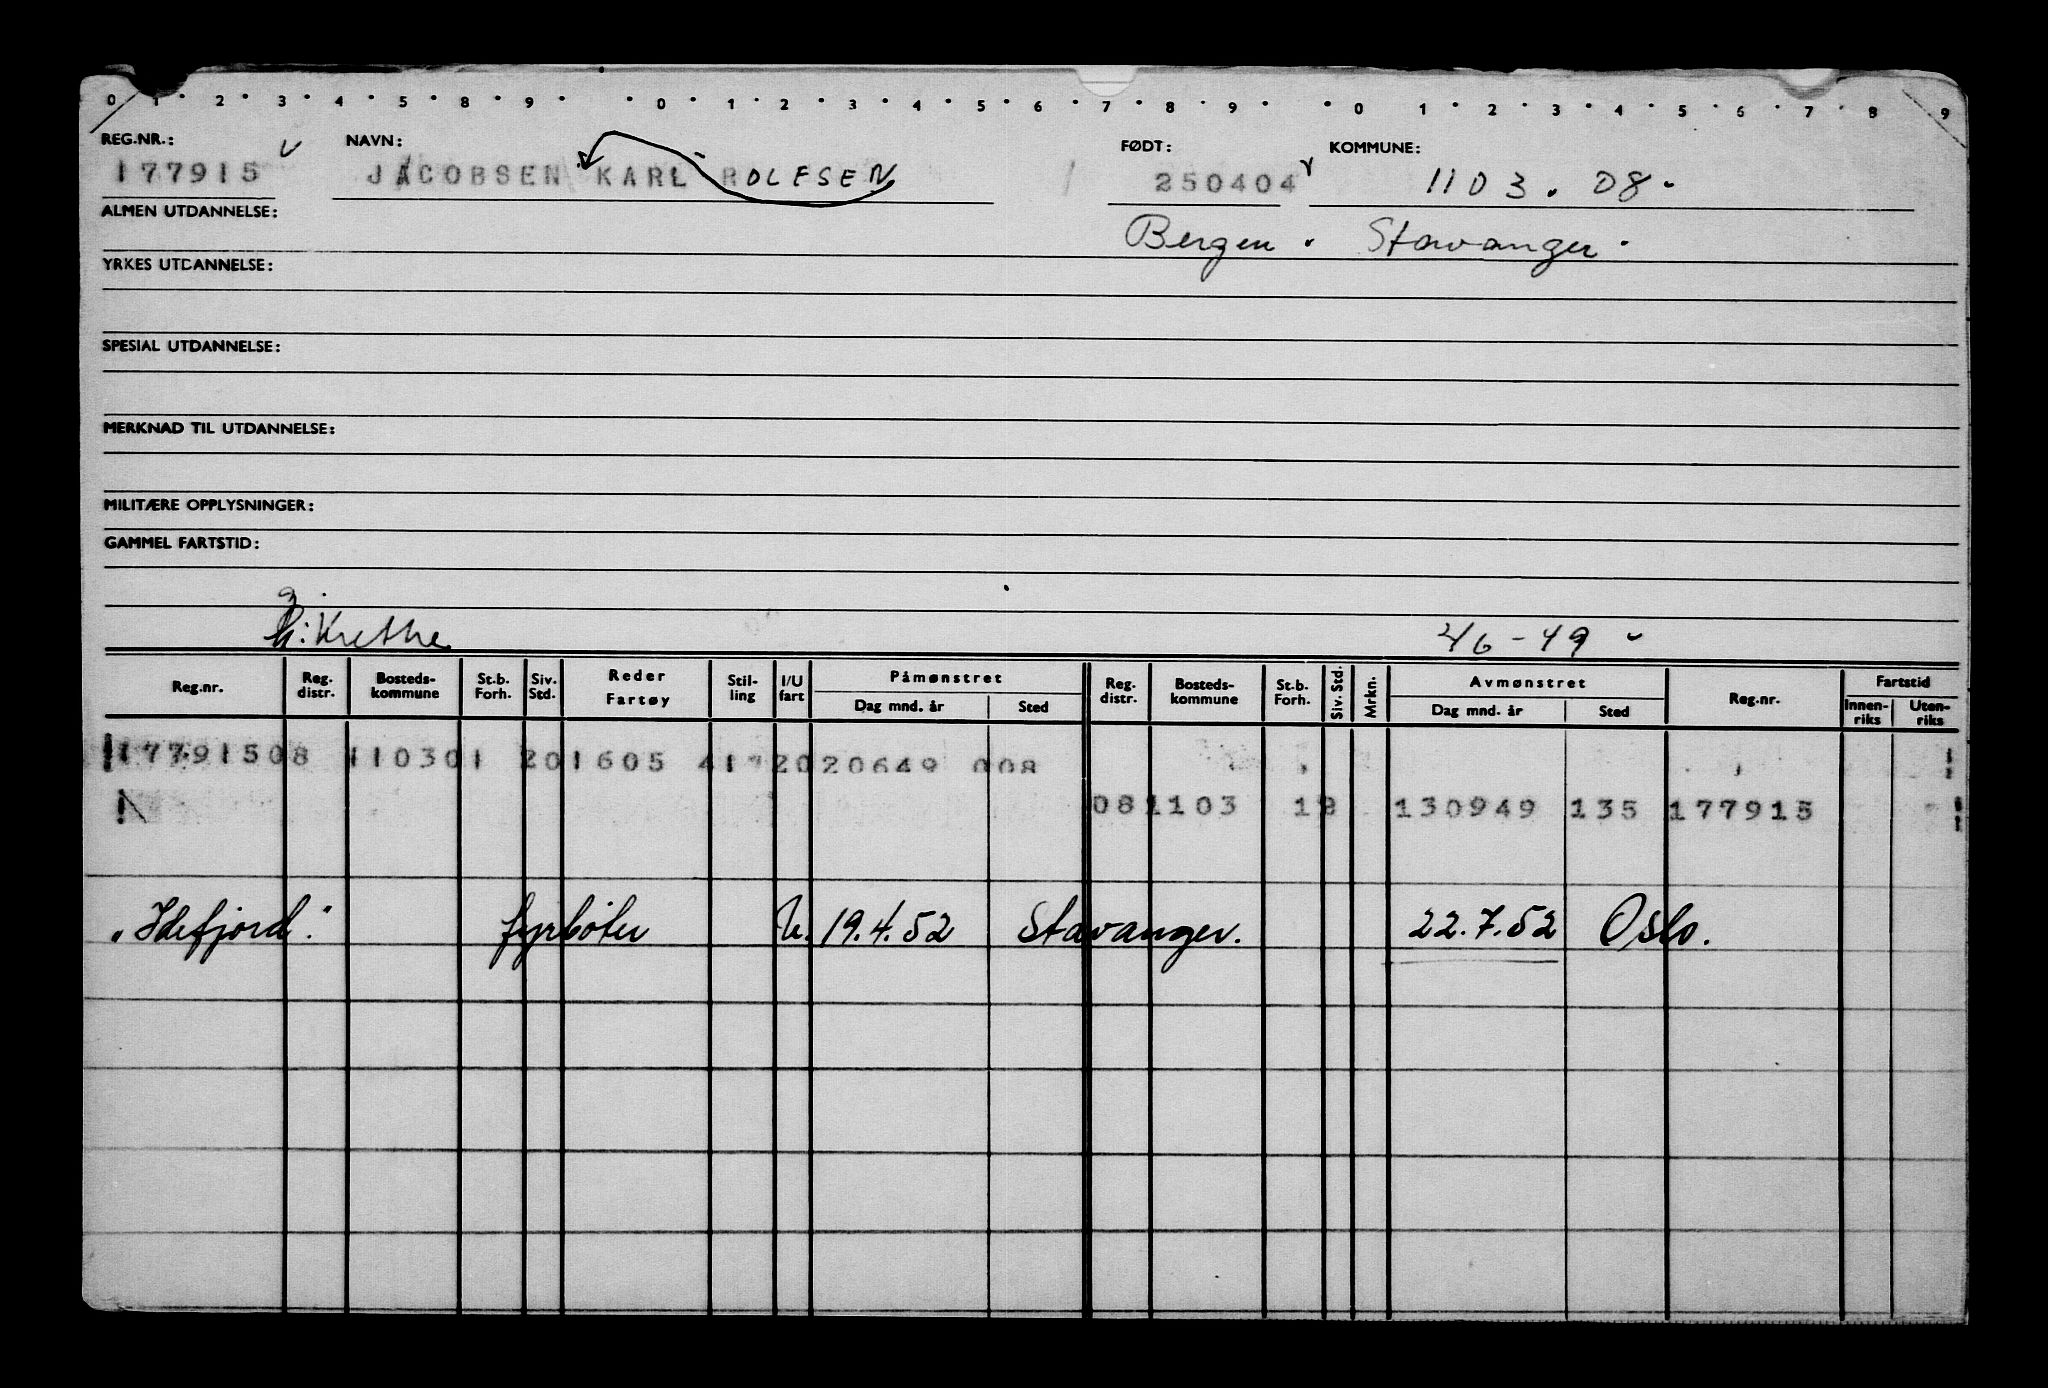 0 1 2 3 4 5 8 9 0 1 2 3 4 5 6 7 8 9 0 1 2 3 4 5 6 7 8 9
REG.NR.: NAVN: FØDT: KOMMUNE:
177915 JACOBSEN KARL ROLFSEN 250404 1103.08.
ALMEN UTDANNELSE: Bergen. Stavanger.
YRKES UTDANNELSE:
SPESIAL UTDANNELSE:
MERKNAD TIL UTDANNELSE:
MILITÆRE OPPLYSNINGER:
GAMMEL FARTSTID:
Krethe 2/6-49
Reg.nr. Reg. distr. Bosteds-kommune St.b. Forh. Siv. Std. Reder Fartøy Stil-ling I/U fart Påmønstret Dag mnd. år Sted Reg. distr. Bosteds-kommune St.b. Forh. Siv. Std. Mrkn. Avmønstret Dag mnd. år Sted Reg.nr. Fartstid Innen-riks Uten-riks
17791508 110301 201605 417 20 20649 008
081103 130949 135 177915
"Idefjord". fyrbøter U. 19.4.52 Stavanger. 22.7.52 Oslo.